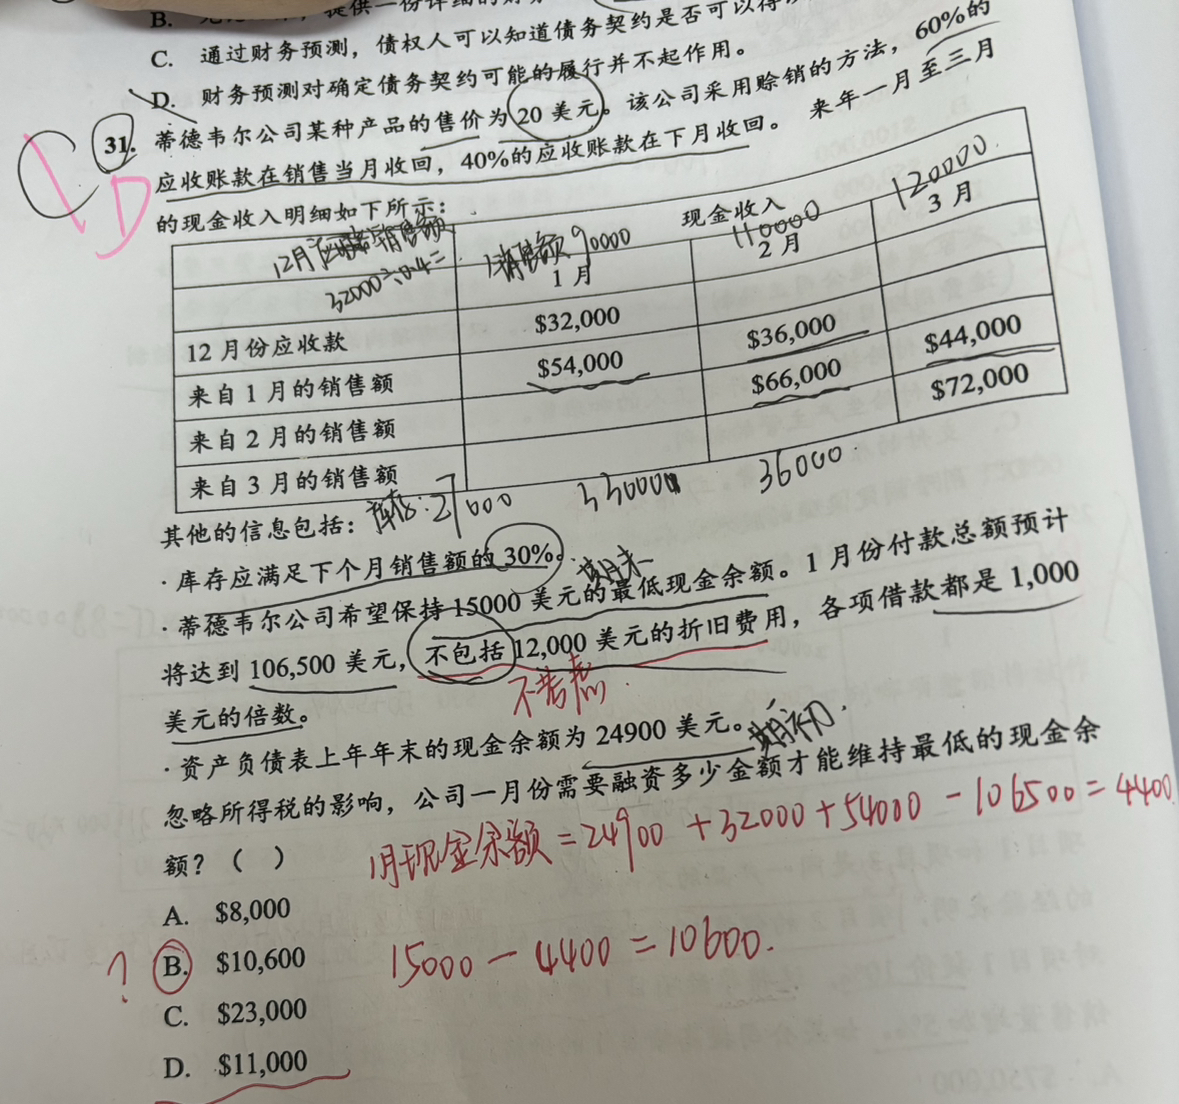 C. 通过财务预测，债权人可以知道债务契约是否可以得
D. 财务预测对确定债务契约可能的履行并不起作用。
31. 蒂德韦尔公司某种产品的售价为20美元。该公司采用赊销的方法，60%的
应收账款在销售当月收回，40%的应收账款在下月收回。来年一月至三月
的现金收入明细如下所示：
C
D
现金收入
12月应收账款销售额
32000÷0.4=
1销售额90000
110000
120000.
1月 2月 3月
12月份应收款 $32,000
来自1月的销售额 $54,000 $36,000
来自2月的销售额 $66,000 $44,000
来自3月的销售额 $72,000
其他的信息包括：
库存：27000 330000 36000.
·库存应满足下个月销售额的30%。
期末
·蒂德韦尔公司希望保持15000美元的最低现金余额。1月份付款总额预计
将达到106,500美元，不包括12,000美元的折旧费用，各项借款都是1,000
不考虑.
美元的倍数。
·资产负债表上年年末的现金余额为24900美元。
期初.
忽略所得税的影响，公司一月份需要融资多少金额才能维持最低的现金余
额？（ ）
1月现金余额=24900+32000+54000-106500=4400
A. $8,000
? B. $10,600
15000-4400=10600.
C. $23,000
D. $11,000